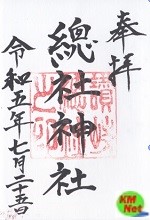 奉拝
總社神社
令和五年七月二十五日
KM
Net